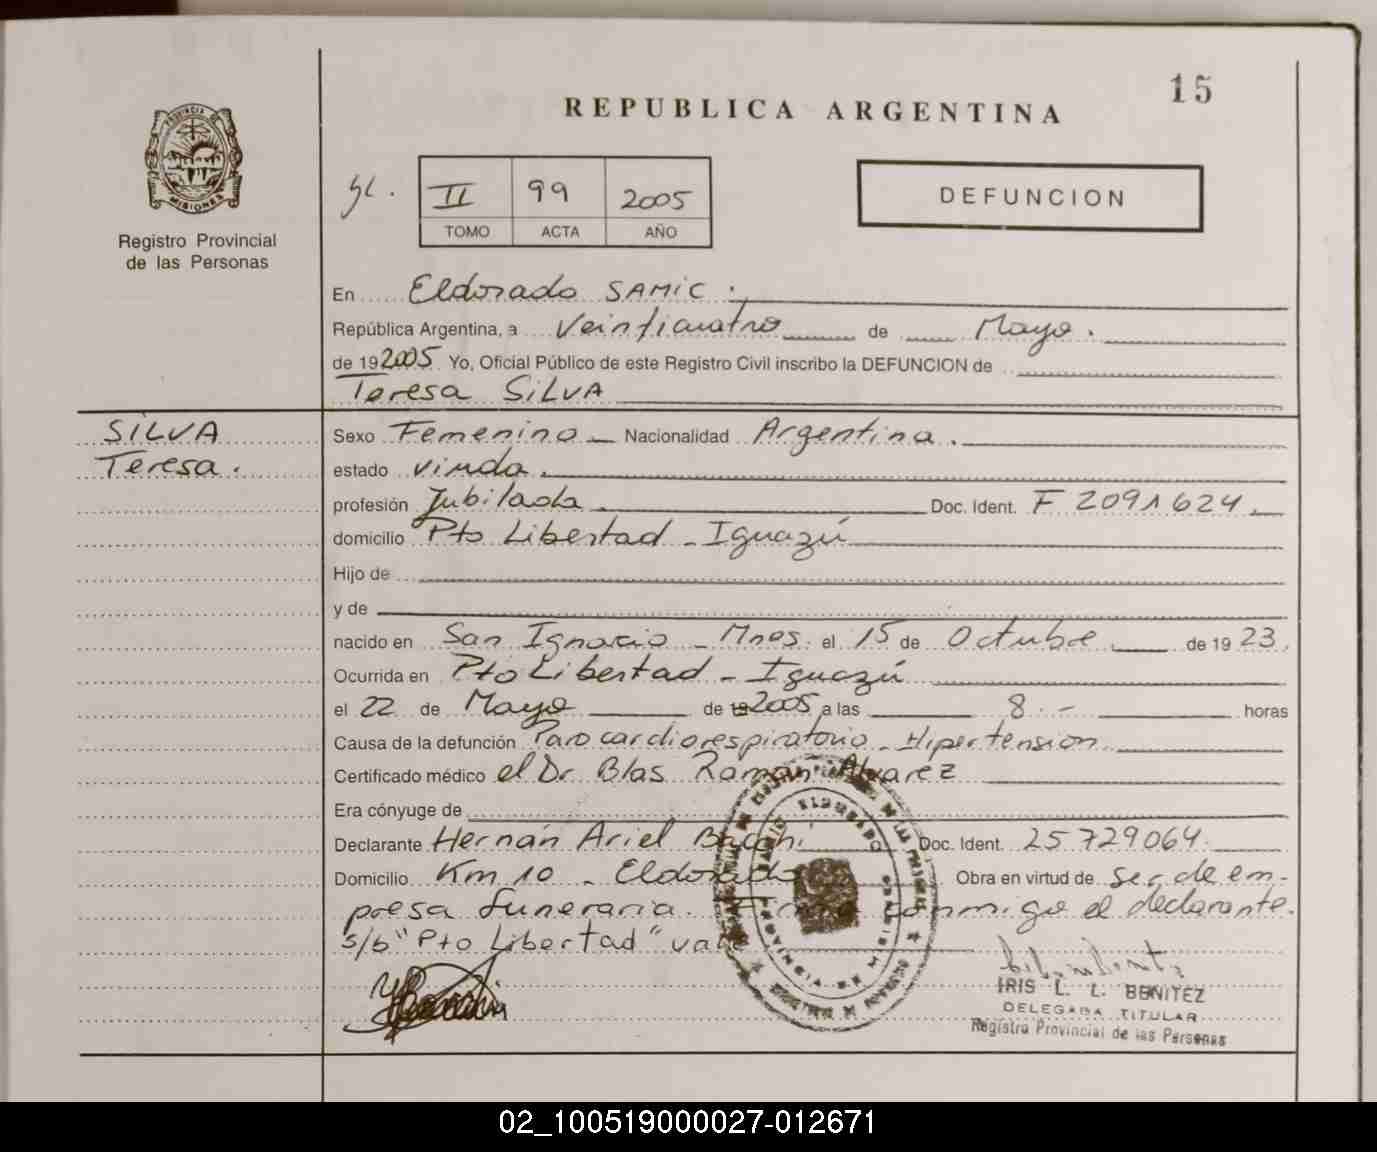 15
REPUBLICA ARGENTINA
PROVINCIA DE
MISIONES
Registro Provincial
de las Personas
II 99 2005
TOMO ACTA AÑO
DEFUNCION
En Eldorado SAMIC.
República Argentina, a Veinticuatro de Mayo.
de 192005 Yo, Oficial Público de este Registro Civil inscribo la DEFUNCION de
Teresa SILVA
SILVA
Teresa.
Sexo Femenino Nacionalidad Argentina.
estado viuda.
profesión Jubilada. Doc. Ident. F 2091624.
domicilio Pto Libertad - Iguazú
Hijo de
y de
nacido en San Ignacio - Mnes. el 15 de Octubre de 1923.
Ocurrida en Pto Libertad - Iguazú
el 22 de Mayo de 192005 a las 8.- horas
Causa de la defunción Paro cardiorespiratorio - Hipertensión
Certificado médico el Dr Blas Ramón Alvarez
Era cónyuge de
Declarante Hernán Ariel Doc. Ident. 25729064.
Domicilio Km 10 - Eldorado Obra en virtud de ser de em-
presa funeraria. Firma conmigo el declarante.
s/b "Pto Libertad" vale
ELDORADO
PROVINCIA DE MISIONES
IRIS L. L. BENITEZ
DELEGADA TITULAR
Registro Provincial de las Personas
02_100519000027-012671